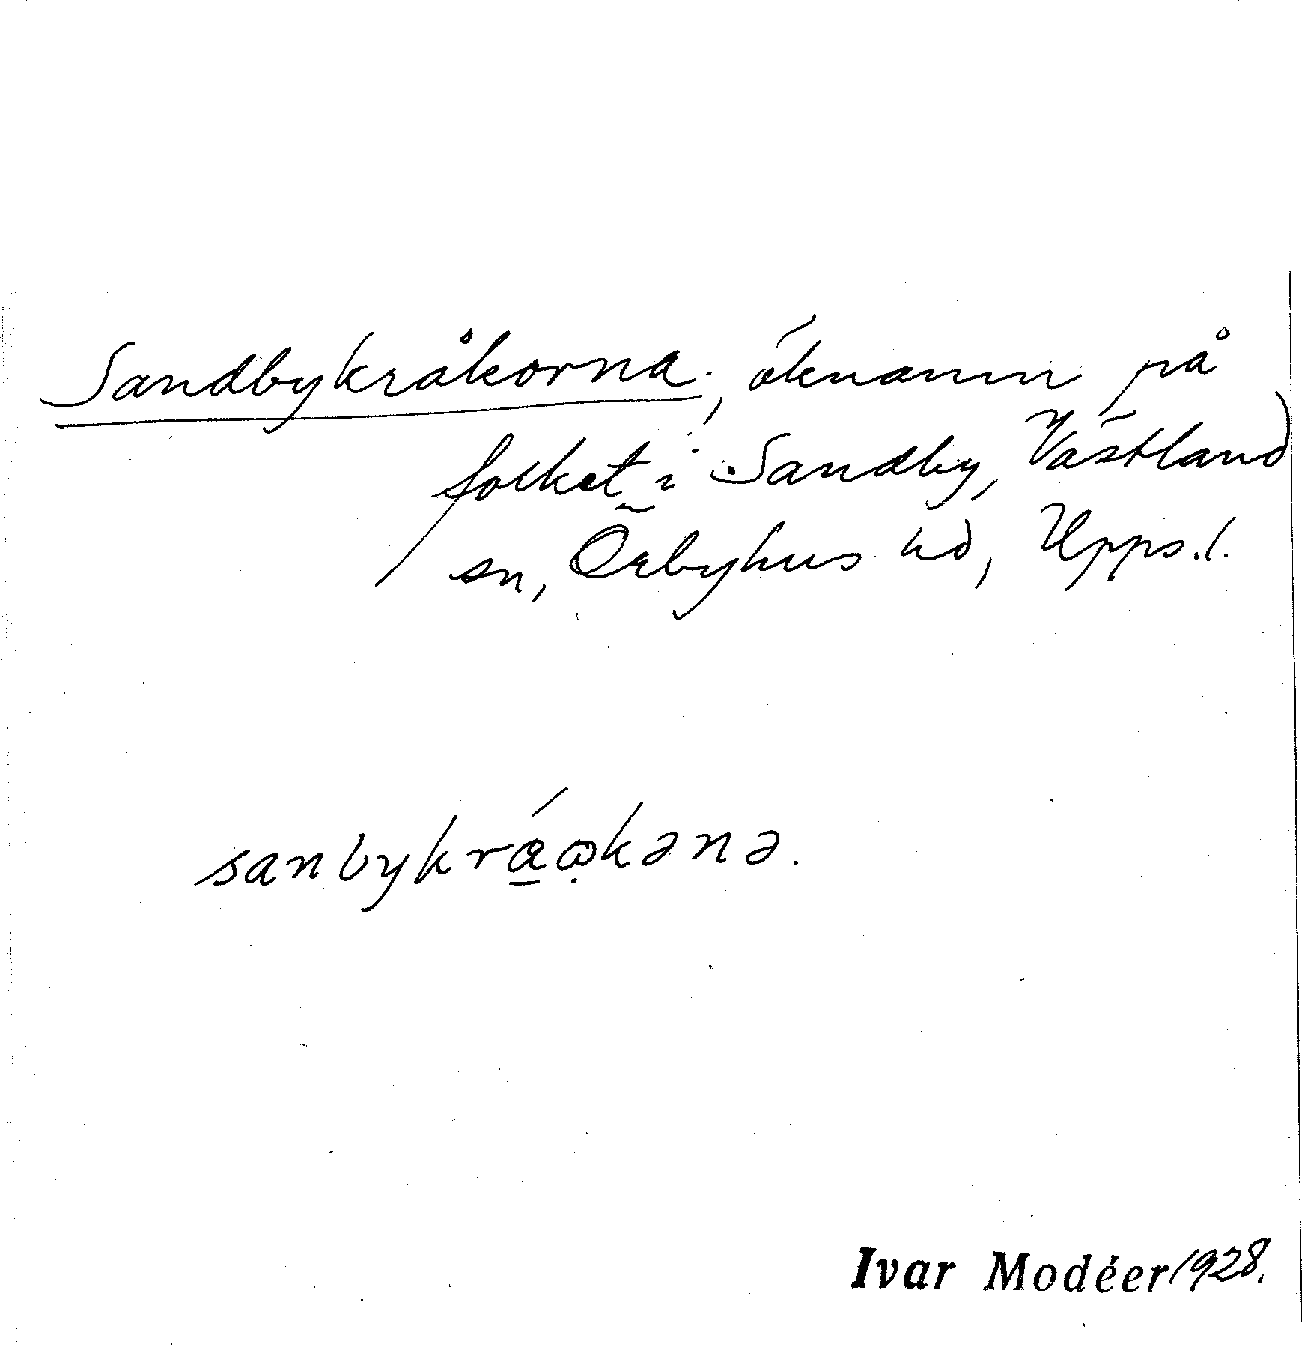 Sandbykråkorna, öknamn på
folket i Sandby, Västland
sn, Örbyhus hd, Upps.l.
sanbykráωkənə.
Ivar Modéer 1928.